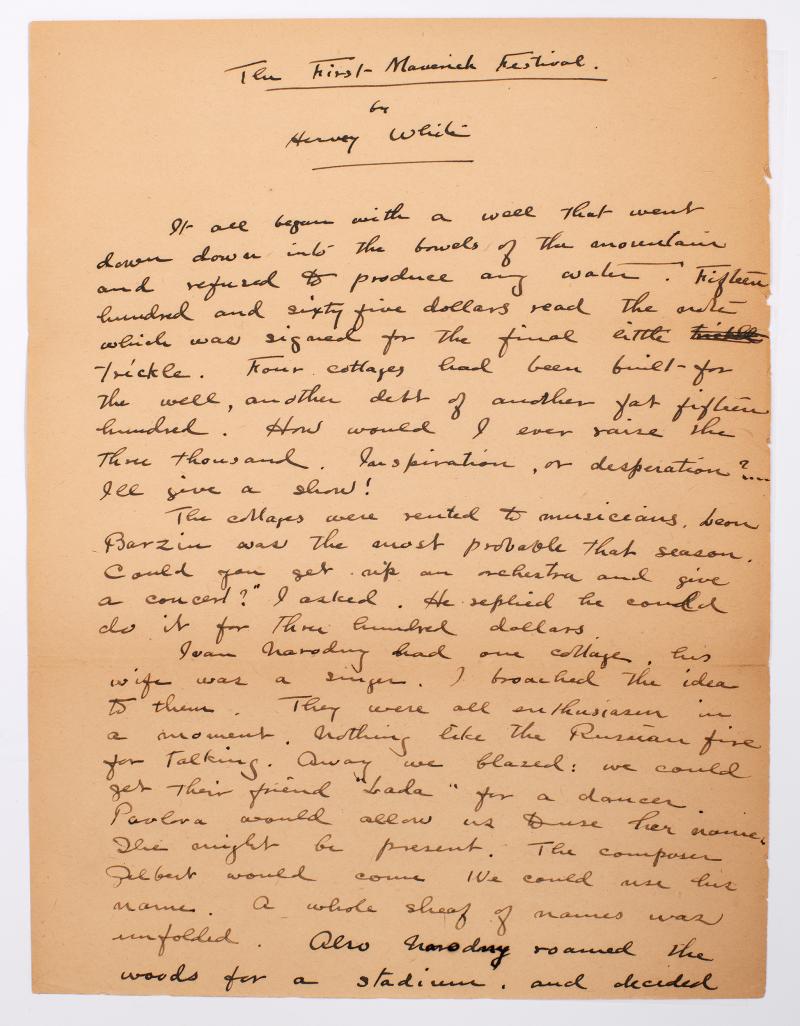 The First Maverick Festival.
by
Hervey White
It all began with a well that went
down down into the bowels of the mountain
and refused to produce any water. Fifteen
hundred and sixty five dollars read the note
which was signed for the final little trickle
trickle. Four cottages had been built for
the well, another debt of another fat fifteen
hundred. How would I ever raise the
three thousand. Inspiration, or desperation?....
I'll give a show!
The cottages were rented to musicians. Leon
Barzin was the most probable that season.
Could you get up an orchestra and give
a concert?" I asked. He replied he could
do it for three hundred dollars
Ivan Narodny had one cottage, his
wife was a singer. I broached the idea
to them. They were all enthusiasm in
a moment. Nothing like the Russian fire
for talking. Away we blazed: we could
get their friend "Lada" for a dancer.
Pavlova would allow us to use her name.
She might be present. The composer
would come We could use his
name. A whole sheaf of names was
unfolded. Also Narodny roamed the
woods for a stadium, and decided